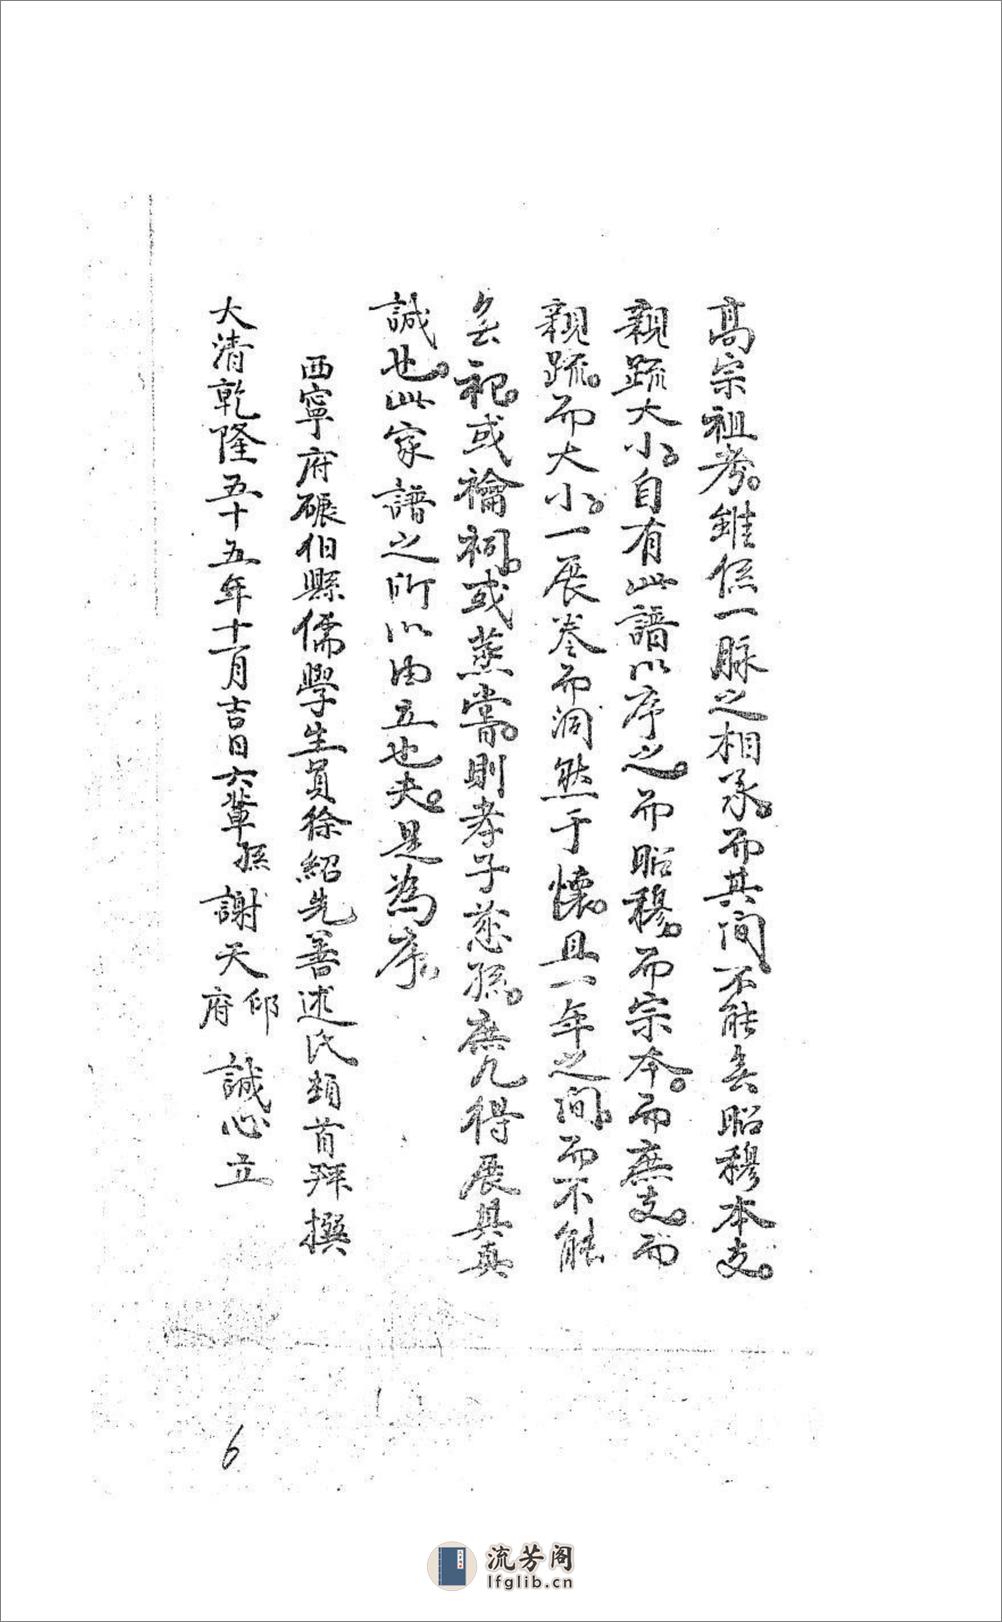 高宗祖考。雖係一脉之相承。而其间不能무昭穆本支。
親疏大小。自有此譜以序之。而昭穆。而宗本。而庶支。而
親疏。而大小。一展卷而洞然于懷。且一年之间。而不能
祀。或禴祠。或蒸嘗。則孝子慈孫。庶几得展其真
誠也。此家譜之所以由立也夫。是為序。
西寧府碾伯縣儒學生員徐紹先善述氏頓首拜撰
大清乾隆五十五年十一月吉日六輩孫謝天邱府誠心立
6
流芳阁
lfglib.cn